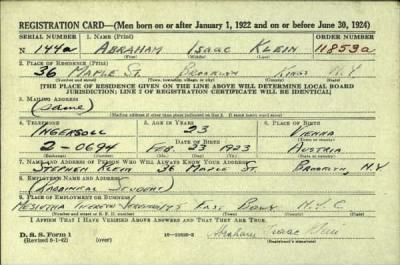 REGISTRATION CARD—(Men born on or after January 1, 1922 and on or before June 30, 1924)
SERIAL NUMBER 1. NAME (Print) ORDER NUMBER
N 144a ABRAHAM ISAAC KLEIN 11853a
(First) (Middle) (Last)
2. PLACE OF RESIDENCE (Print)
36 MAPLE ST. BROOKLYN KINGS N.Y.
(Number and street) (Town, township, village, or city) (County) (State)
[THE PLACE OF RESIDENCE GIVEN ON THE LINE ABOVE WILL DETERMINE LOCAL BOARD
JURISDICTION; LINE 2 OF REGISTRATION CERTIFICATE WILL BE IDENTICAL]
3. MAILING ADDRESS
(Same)
[Mailing address if other than place indicated on line 2. If same insert word same]
4. TELEPHONE 5. AGE IN YEARS 6. PLACE OF BIRTH
INGERSOLL 23 VIENNA
DATE OF BIRTH
2-0694 FEB 23 1923 AUSTRIA
(Exchange) (Number) (Mo.) (Day) (Yr.) (State or country)
7. NAME AND ADDRESS OF PERSON WHO WILL ALWAYS KNOW YOUR ADDRESS
STEPHEN KLEIN 36 MAPLE ST. BROOKLYN, N.Y
8. EMPLOYER'S NAME AND ADDRESS
(RABBINICAL STUDENT)
9. PLACE OF EMPLOYMENT OR BUSINESS
MESIVTHA EAST BDWY N.Y.C
(Number and street or R. F. D. number) (Town) (County) (State)
I AFFIRM THAT I HAVE VERIFIED ABOVE ANSWERS AND THAT THEY ARE TRUE.
D. S. S. Form 1
(Revised 6-1-42) (over) Abraham Isaac Klein
(Registrant's signature)